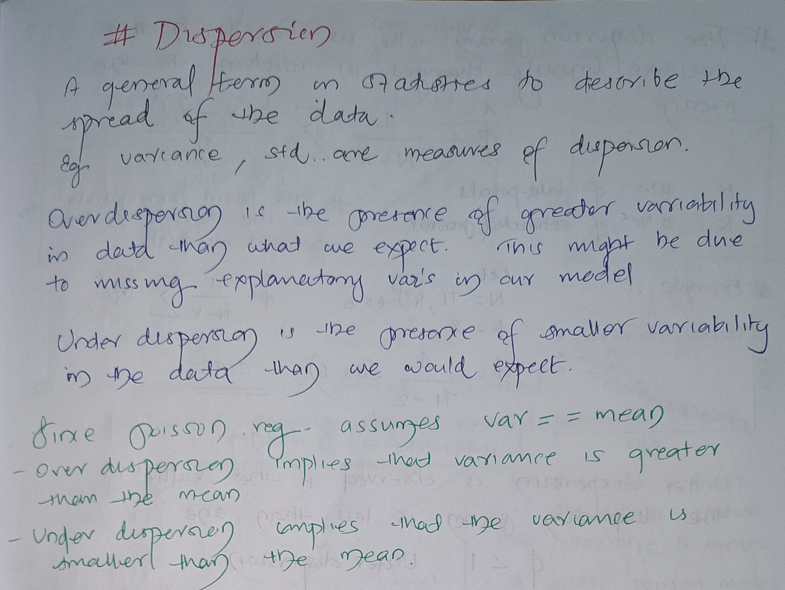 # Dispersion
A general term in statistics to describe the
spread of the data.
Eg. variance, std.. are measures of dispersion.
Over dispersion is the presence of greater varriability
in data than what we expect. This might be due
to missing explanatory var's in our model
Under dispersion is the presence of smaller variability
in the data than we would expect.
Since poisson reg. assumes var == mean
- Over dispersion implies that variance is greater
than the mean
- Under dispersion implies that the variance is
smaller than the mean.